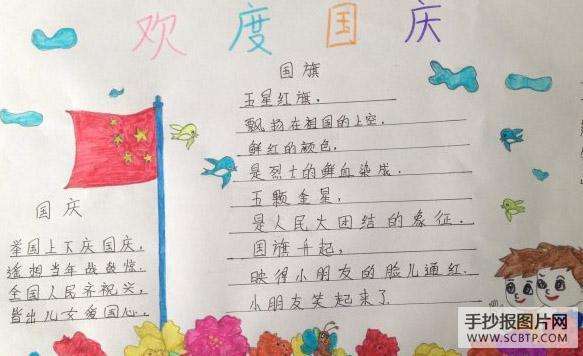 欢度国庆
国旗
五星红旗，
飘扬在祖国的上空，
鲜红的颜色，
是烈士的鲜血染成。
五颗金星，
是人民大团结的象征。
国旗升起，
映得小朋友的脸儿通红，
小朋友笑起来了
国庆
举国上下庆国庆，
遥想当年战鼓惊。
全国人民齐祝兴，
皆出儿女爱国心。
手抄报图片网
WWW.SCBTP.COM